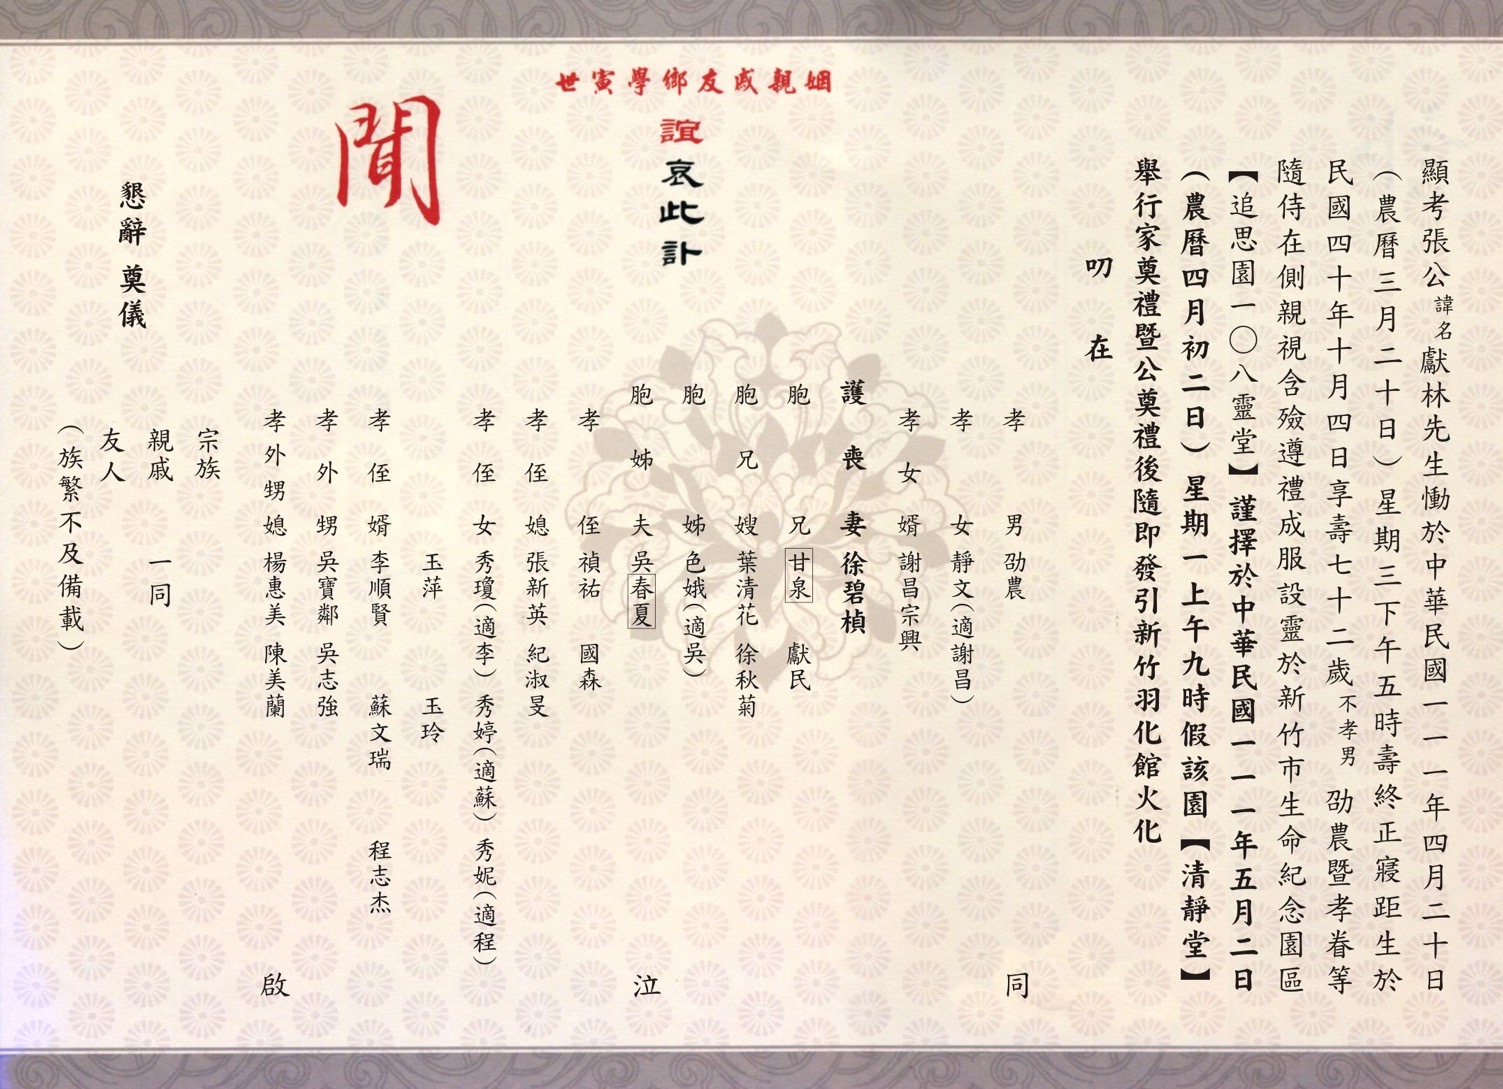 顯考張公諱名獻林先生慟於中華民國一一一年四月二十日
（農曆三月二十日）星期三下午五時壽終正寢距生於
民國四十年十月四日享壽七十二歲不孝男劭農暨孝眷等
隨侍在側親視含殮遵禮成服設靈於新竹市生命紀念園區
【追思園一〇八靈堂】謹擇於中華民國一一一年五月二日
（農曆四月初二日）星期一上午九時假該園【清靜堂】
舉行家奠禮暨公奠禮後隨即發引新竹羽化館火化
叨在
姻親戚友鄉學寅世
誼哀此訃
聞
孝男 劭農
孝女 靜文（適謝昌）
孝女婿 謝昌宗興
護喪妻 徐碧楨
胞兄 甘泉 獻民
胞兄嫂 葉清花 徐秋菊
胞姊 色娥（適吳）
胞姊夫 吳春夏
孝侄 禎祐 國森
孝侄媳 張新英 紀淑旻
孝侄女 秀瓊（適李）秀婷（適蘇）秀妮（適程）
玉萍 玉玲
孝侄婿 李順賢 蘇文瑞 程志杰
孝外甥 吳寶鄰 吳志強
孝外甥媳 楊惠美 陳美蘭
同泣啟
宗族
親戚 一同
友人
（族繁不及備載）
懇辭 奠儀